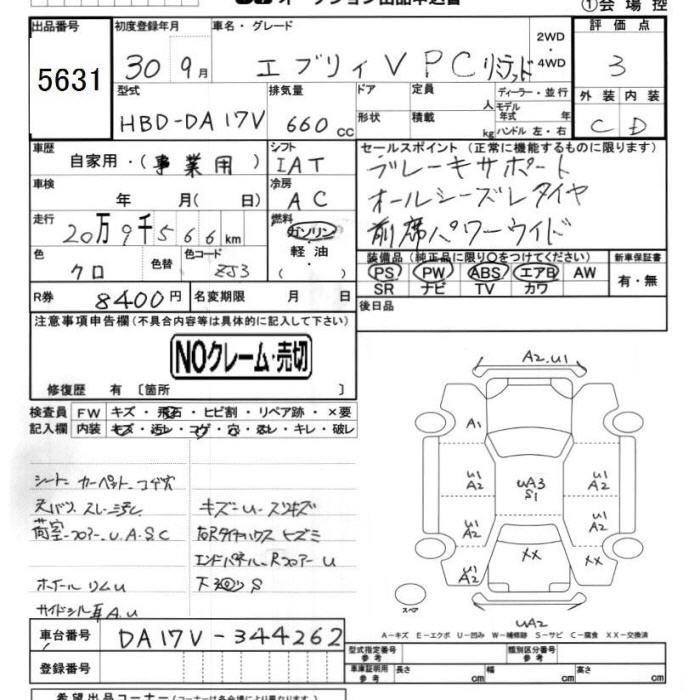 ①会場控
出品番号
5631
初度登録年月
30 9月
車名・グレード
エブリィ V PCリミテッド
2WD
・
4WD
評価点
3
型式
HBD-DA17V
排気量
660cc
ドア
形状
定員 人
積載 kg
ディーラー・並行
モデル年式 年
ハンドル 左・右
外装 内装
C D
車歴
自家用・(事業用)
シフト
IAT
車検
年 月(日)
冷房
AC
走行
20万9千566km
燃料
ガソリン
・
軽油
・
色
クロ
色替
色コード
ZJ3
R券
8400円
名変期限 月 日
セールスポイント(正常に機能するものに限ります)
ブレーキサポート
オールシーズンタイヤ
前席パワーウインド
装備品(純正品に限り〇をつけてください)
PS PW ABS エアB AW
SR ナビ TV カワ
新車保証書
有・無
後日品
注意事項申告欄(不具合内容等は具体的に記入して下さい)
NOクレーム・売切
修復歴 有〔箇所 〕
検査員記入欄
FW キズ・飛石・ヒビ割・リペア跡・×要
内装 キズ・汚レ・コゲ・穴・ヌレ・キレ・破レ
シート カーペット コゲ穴
荷室フロアー U.A.S.C
ホイール リムU
サイドシル耳 A.U
キズ-U-スリキズ
エンドパネル-Rフロアー U
下回り S
A2.U1
A1
U1
A2
U1
A2
U1
A2
UA3
S1
U1
A2
U1
A2
XX
XX
スペア
UA2
A-キズ E-エクボ U-凹み W-補修跡 S-サビ C-腐食 XX-交換済
車台番号
DA17V-344262
登録番号
型式指定番号 参考
類別区分番号 参考
車庫証明用 参考
長さ cm
幅 cm
高さ cm
希望出品コーナー(コーナーは各会場により異なります)